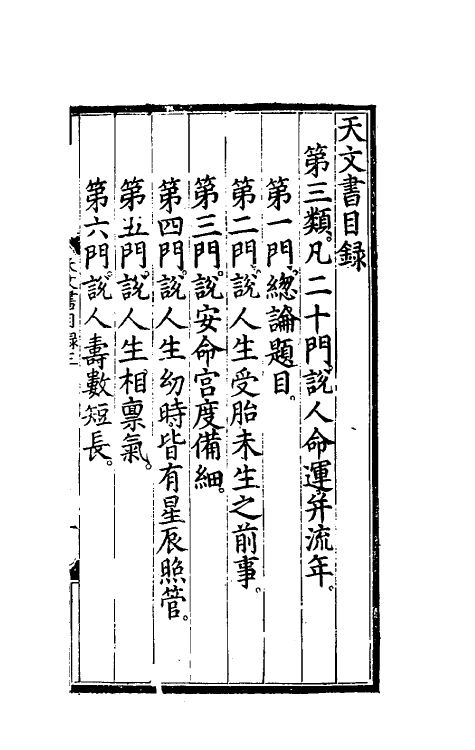 天文書目録
第三類。凡二十門。説人命運并流年。
第一門。總論題目。
第二門。説人生受胎未生之前事。
第三門。説安命宫度備細。
第四門。説人生幼時皆有星辰照管。
第五門。説人生相禀氣。
第六門。説人壽數短長。
天文書目録三